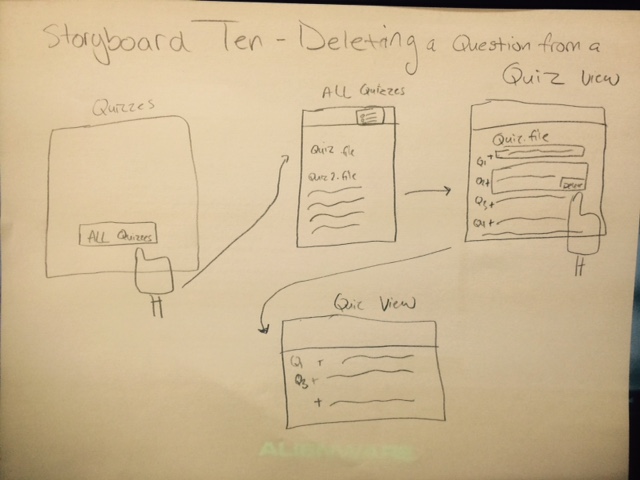 Storyboard Ten - Deleting a Question from a
Quiz View
Quizzes
ALL Quizzes
ALL Quizzes
Quiz.file
Quiz2.file
Quiz.file
Q1+
Q2+
Q3+
Q4+
Quiz View
Q1 +
Q3 +
+
ALIENWARE